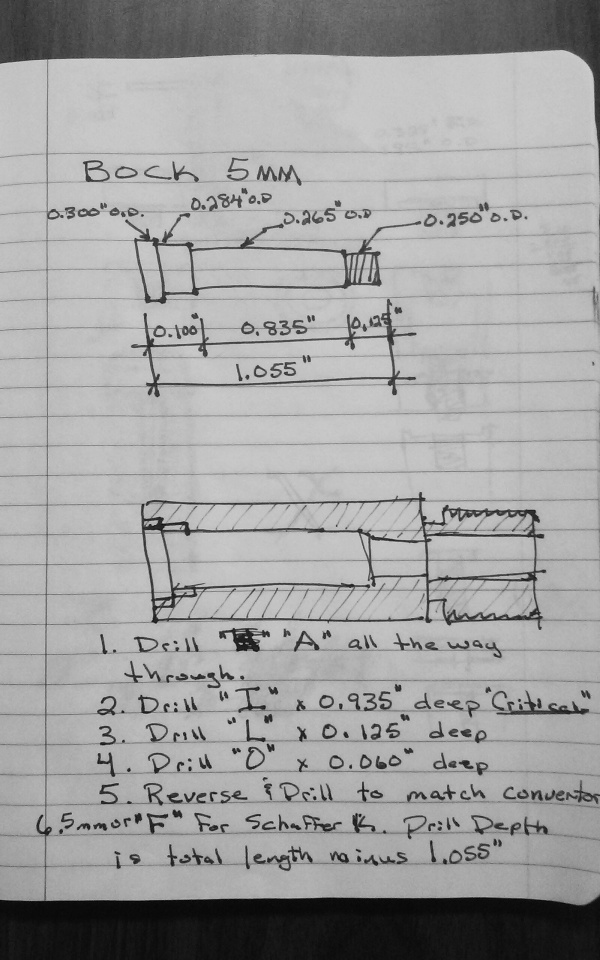 BOCK 5MM
0.300" O.D.
0.284" O.D
0.265" O.D
0.250" O.D.
0.100" 0.835" 0.125"
1.055"
1. Drill "A" all the way
through.
2. Drill "I" x 0.935" deep "Critical"
3. Drill "L" x 0.125" deep
4. Drill "O" x 0.060" deep
5. Reverse & Drill to match convertor
6.5mm or "F" For Schaffer K. Drill Depth
is total length minus 1.055"